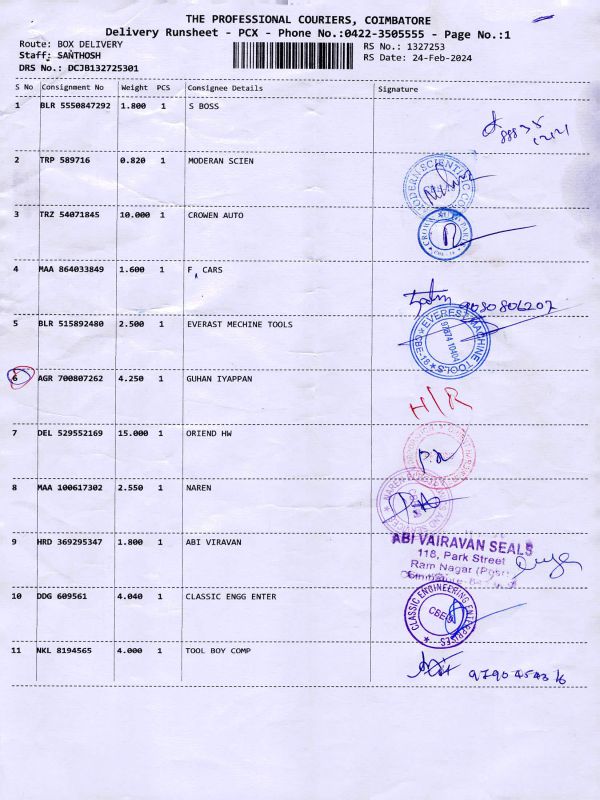 THE PROFESSIONAL COURIERS, COIMBATORE
Delivery Runsheet - PCX - Phone No.:0422-3505555 - Page No.:1
Route: BOX DELIVERY RS No.: 1327253
Staff: SANTHOSH RS Date: 24-Feb-2024
DRS No.: DCJB132725301
S No Consignment No Weight PCS Consignee Details Signature
1 BLR 5550847292 1.800 1 S BOSS
2 TRP 589716 0.820 1 MODERAN SCIEN
MODERN SCIENTIFIC CO
3 TRZ 54071845 10.000 1 CROWEN AUTO
CROWN
4 MAA 864033849 1.600 1 F CARS
5 BLR 515892480 2.500 1 EVERAST MECHINE TOOLS
EVEREST MACHINE TOOLS
CBE-18
6 AGR 700807262 4.250 1 GUHAN IYAPPAN
H/R
7 DEL 529552169 15.000 1 ORIEND HW
8 MAA 100617302 2.550 1 NAREN
NAREN
9 HRD 369295347 1.800 1 ABI VIRAVAN
ABI VAIRAVAN SEALS
118, Park Street
Ram Nagar (Post)
10 DDG 609561 4.040 1 CLASSIC ENGG ENTER
CLASSIC ENGINEERING ENTERPRISES
11 NKL 8194565 4.000 1 TOOL BOY COMP